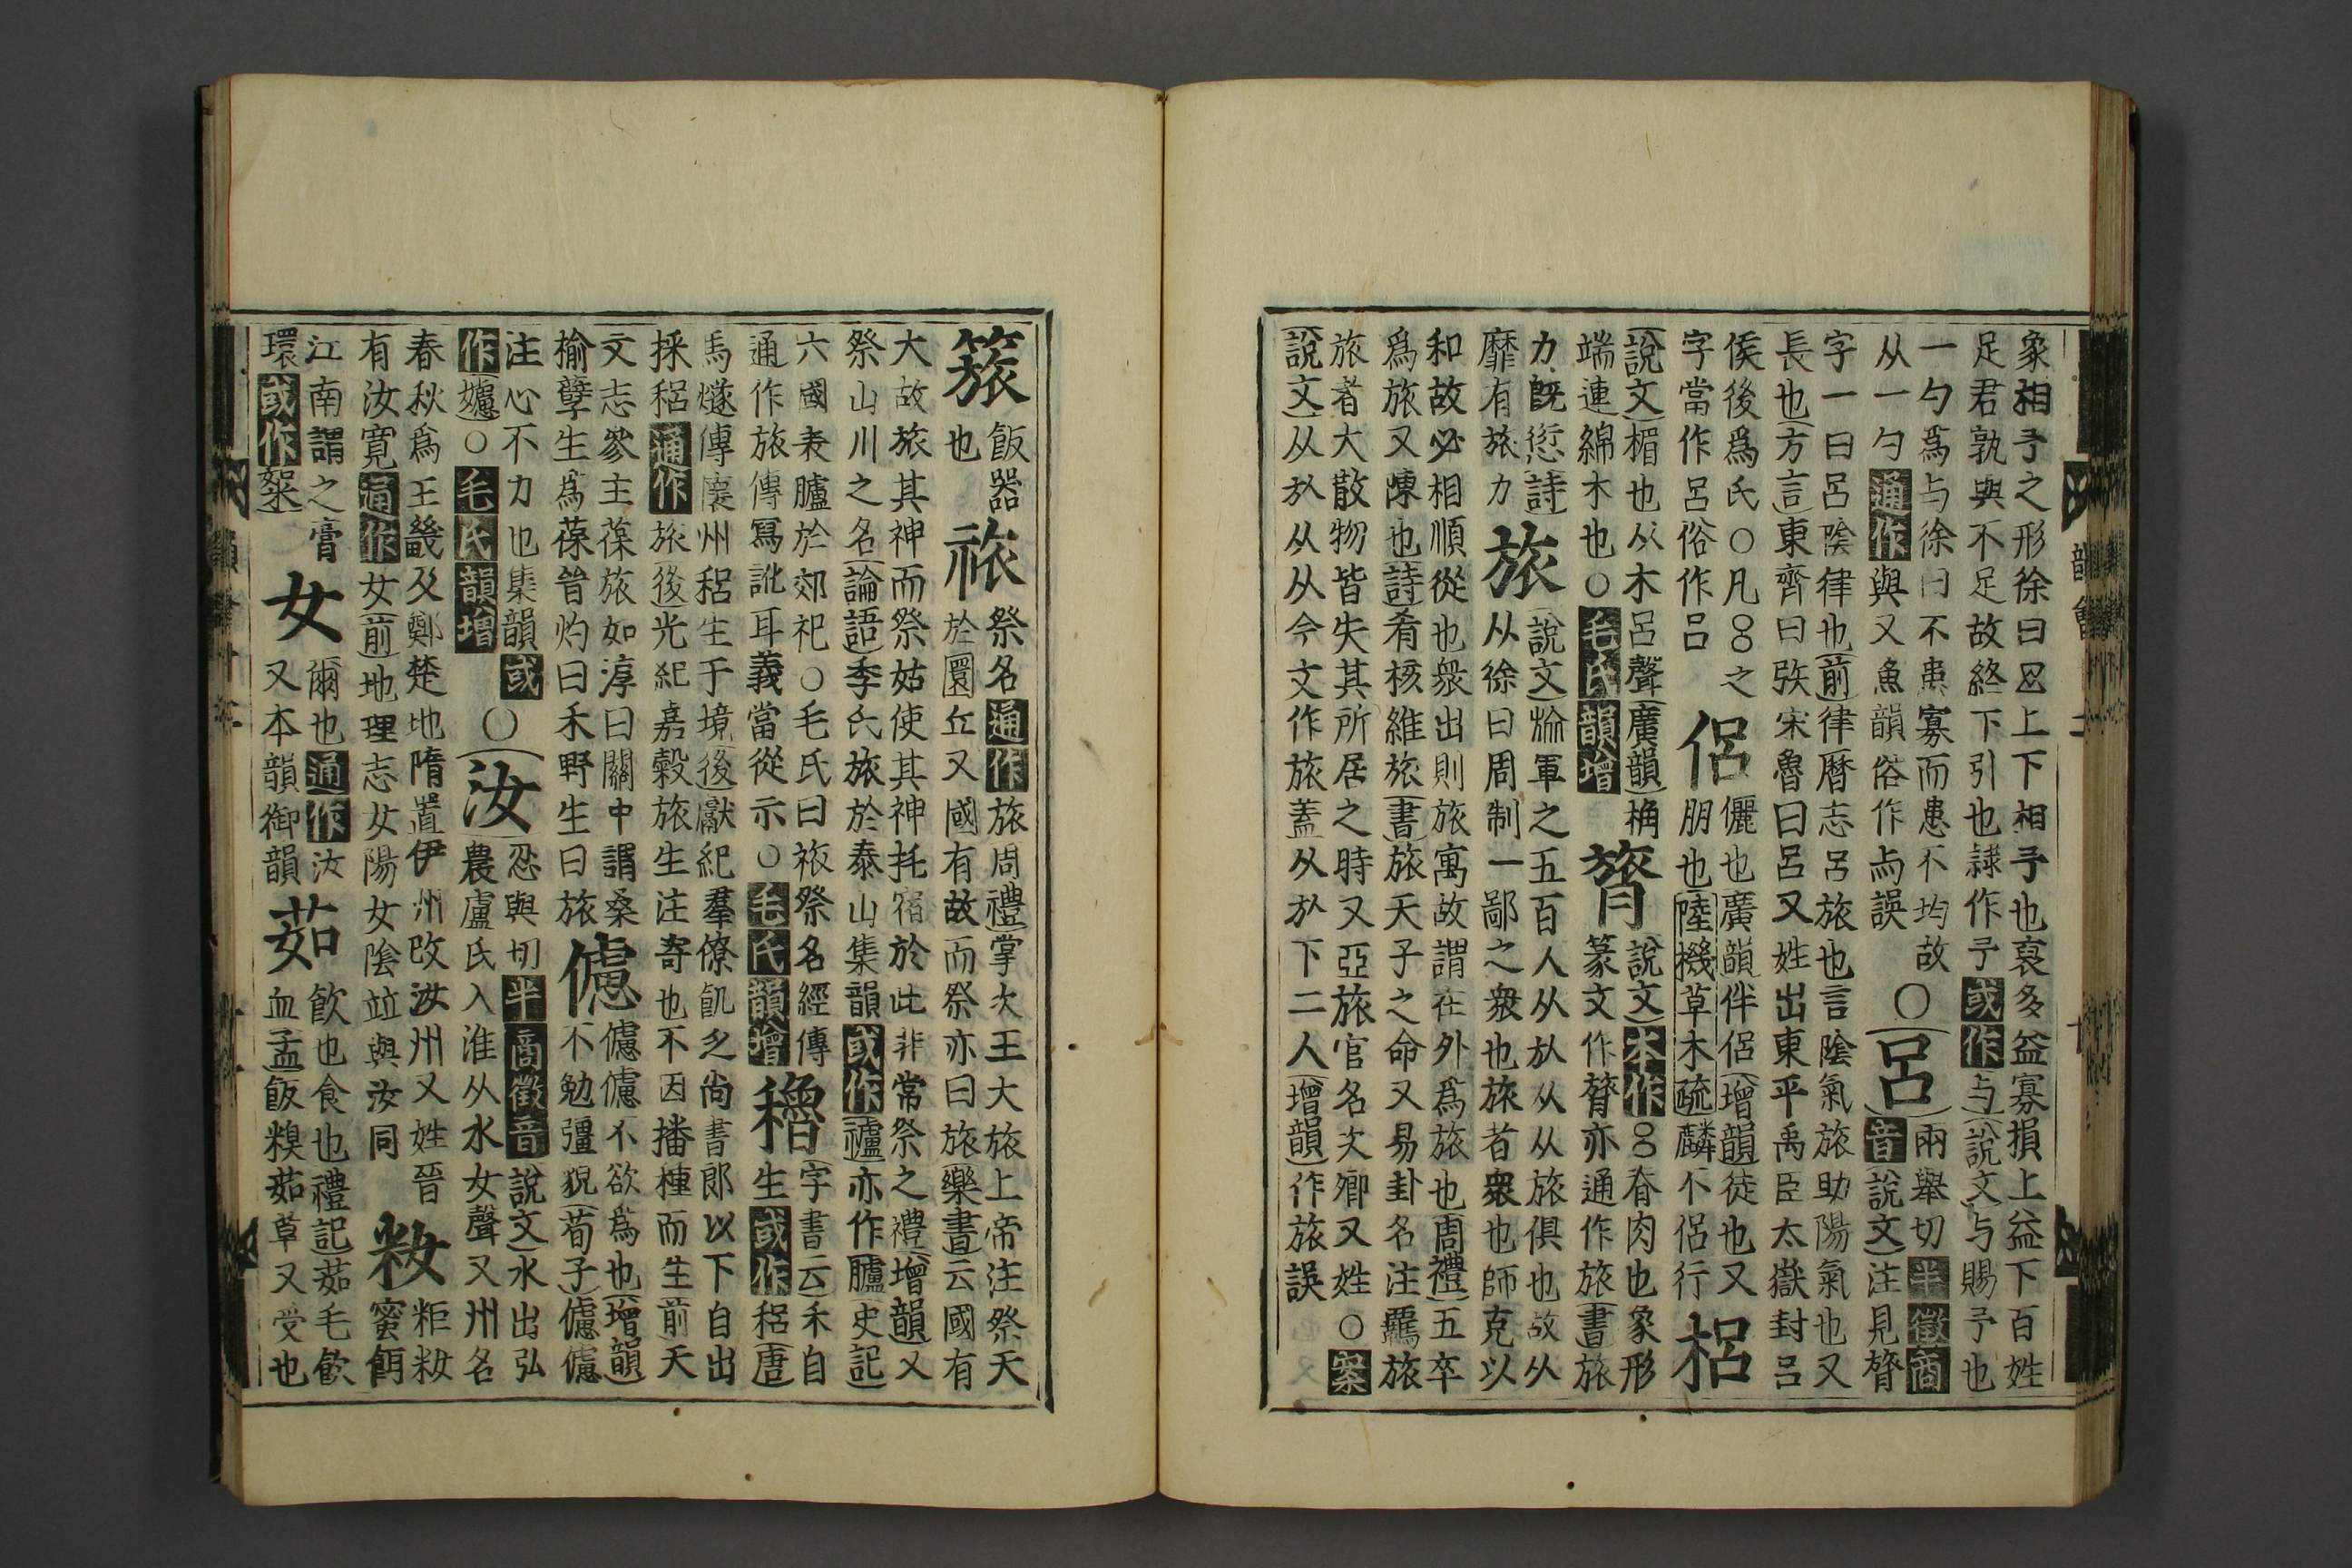 象相予之形徐曰𠄔上下相予也裒多益寡損上益下百姓
足君孰與不足故終下引也隷作予或作与說文与賜予也
一勺爲与徐曰不患寡而患不均故
从一勺通作與又魚韻俗作与誤
○呂
兩舉切半徵商
音說文注見膂
字一曰呂陰律也前律暦志呂旅也言陰氣旅助陽氣也又
長也方言東齊曰矤宋魯曰呂又姓出東平禹臣太嶽封呂
侯後爲氏○凡呂之
字當作呂俗作吕
侶
儷也廣韻伴侶增韻徒也又
朋也陸機草木疏麟不侶行
梠
說文楣也从木呂聲廣韻桷
端連綿木也○毛氏韻增
膂
說文本作呂脊肉也象形
篆文作膂亦通作旅書旅
力旣愆詩
靡有旅力
旅
說文旅軍之五百人从㫃从从旅俱也故从
从徐曰周制一鄙之衆也旅者衆也師克以
和故必相順從也衆出則旅寓故謂在外爲旅也周禮五卒
爲旅又陳也詩肴核維旅書旅天子之命又易卦名注羈旅
旅者大散物皆失其所居之時又亞旅官名次卿又姓○案
說文从㫃从从从今文作旅蓋从㫃下二人增韻作旅誤
簇
飯器
也
祣
祭名通作旅周禮掌次王大旅上帝注祭天
於圜丘又國有故而祭亦曰旅樂書云國有
大故旅其神而祭姑使其神托宿於此非常祭之禮增韻又
祭山川之名論語季氏旅於泰山集韻或作𥜜亦作臚史記
六國表臚於郊祀○毛氏曰祣祭名經傳
通作旅傳寫訛耳義當從示○毛氏韻增
穭
字書云禾自
生或作稆唐
馬燧傳懷州稆生于境後獻紀羣僚飢乏尚書郎以下自出
採稆通作旅後光紀嘉穀旅生注寄也不因播種而生前天
文志參主葆旅如淳曰關中謂桑
榆孽生爲葆晉灼曰禾野生曰旅
儢
儢儢不欲爲也增韻
不勉彊貌荀子儢儢
注心不力也集韻或
作𢤱○毛氏韻增
○汝
忍與切半商徵音說文水出弘
農盧氏入淮从水女聲又州名
春秋爲王畿及鄭楚地隋置伊州改汝州又姓晉
有汝寛通作女前地理志女陽女陰竝與汝同
籹
粔籹
蜜餌
江南謂之膏
環或作䋈
女
爾也通作汝
又本韻御韻
茹
飲也食也禮記茹毛飲
血孟飯糗茹草又受也